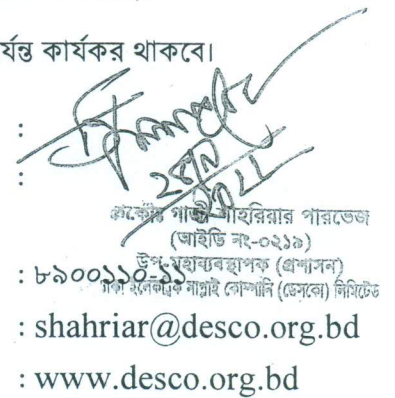 র্যন্ত কার্যকর থাকবে।
:
:
গাজী শাহরিয়ার পারভেজ
(আইডি নং-০২১৯)
উপ-মহাব্যবস্থাপক (প্রশাসন)
: ৮৯০০১১০-১১
ঢাকা ইলেকট্রিক সাপ্লাই কোম্পানি (ডেসকো) লিমিটেড
: shahriar@desco.org.bd
: www.desco.org.bd